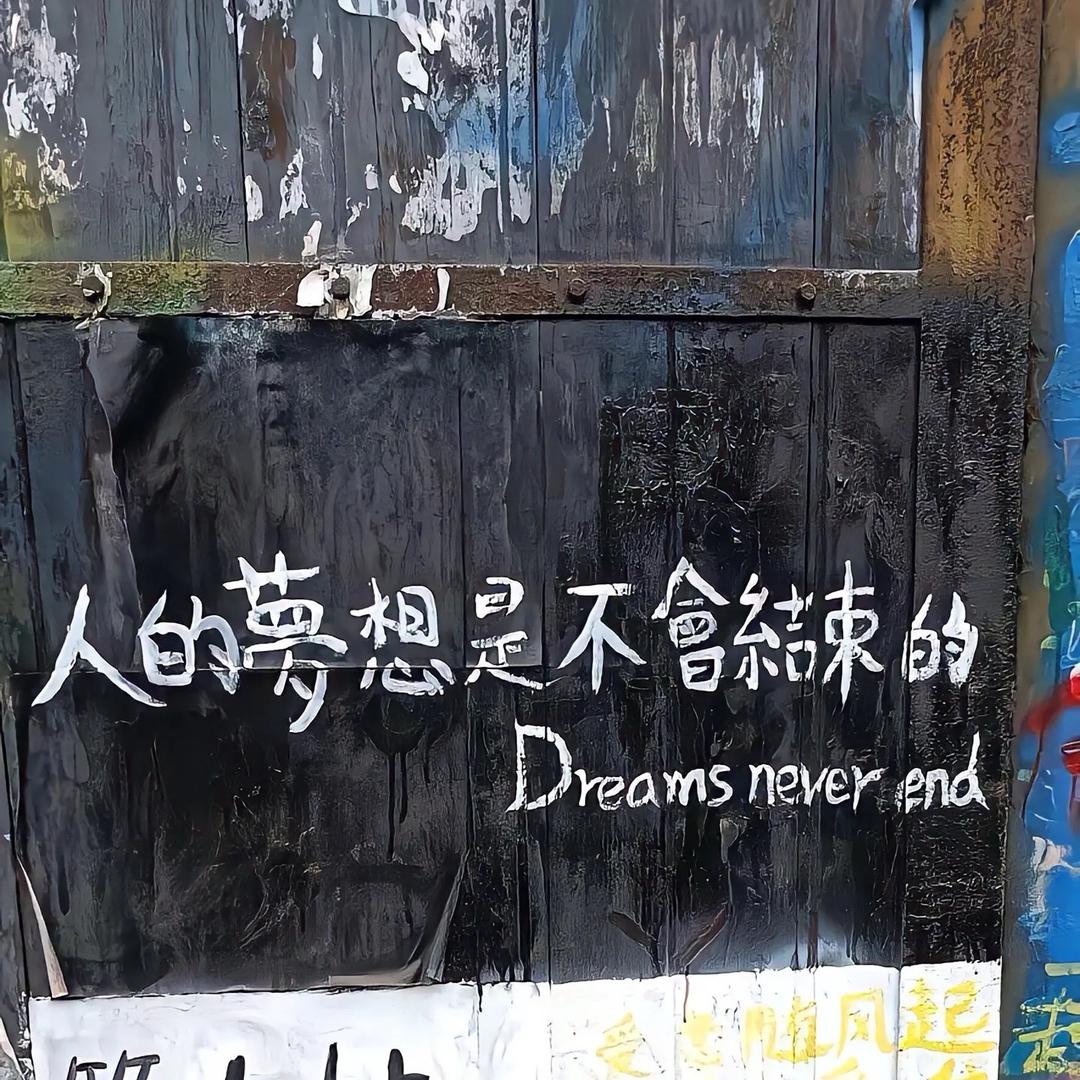 人的夢想是不會結束的
Dreams never end
随风起